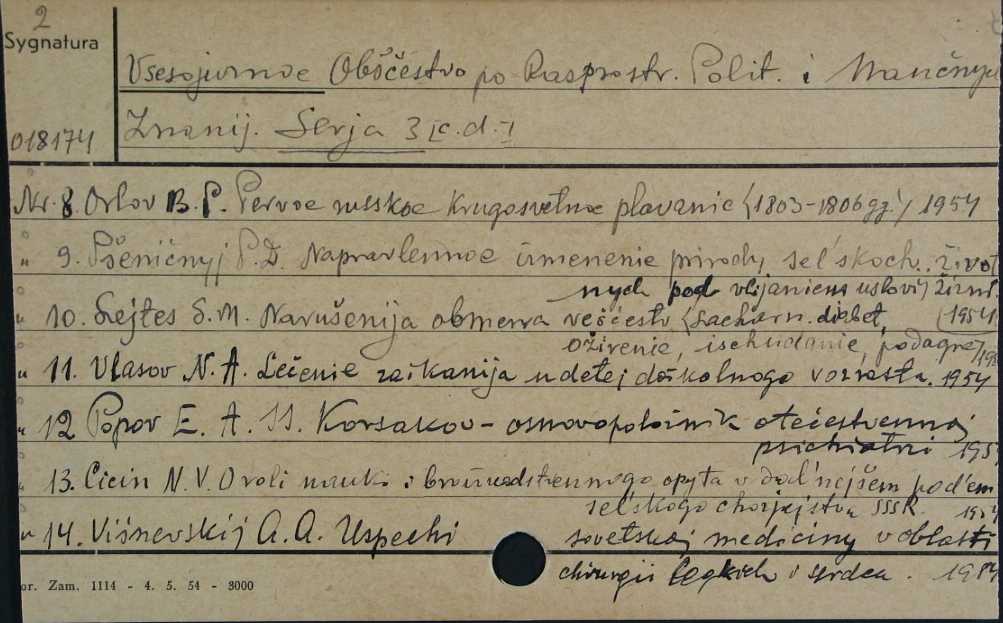 2
Sygnatura
Vsesojuznoe Obščestvo po Rasprostr. Polit. i Naučnych
018174 Znanij. Serja 3 [c.d.]
Nr. 8. Orlov B. P. Pervoe russkoe krugosvetnoe plavanie (1803-1806 gg.) 1954
" 9. Pšeničnyj P. D. Napravlennoe izmenenie prirody sel'skoch. život
nych pod vlijaniem uslovij žizni
" 10. Lejtes S. M. Narušenija obmena veščestv (sacharn. diabet, 1954
ožirenie, ischudanie, podagra)
" 11. Vlasov N. A. Lečenie zaikanija u detej doškolnogo vozrasta. 1954
" 12 Popov E. A. S. S. Korsakov - osnovopoložnik otečestvennoj
psichiatrii 195
" 13. Cicin N. V. O roli nauki i proizvodstvennogo opyta v dal'nejšem pod'em
selskogo chozjajstva SSSR. 1954
" 14. Višnevskij A. A. Uspechi sovetskoj mediciny v oblasti
chirurgii legkich i serdca. 1954
or. Zam. 1114 - 4. 5. 54 - 3000